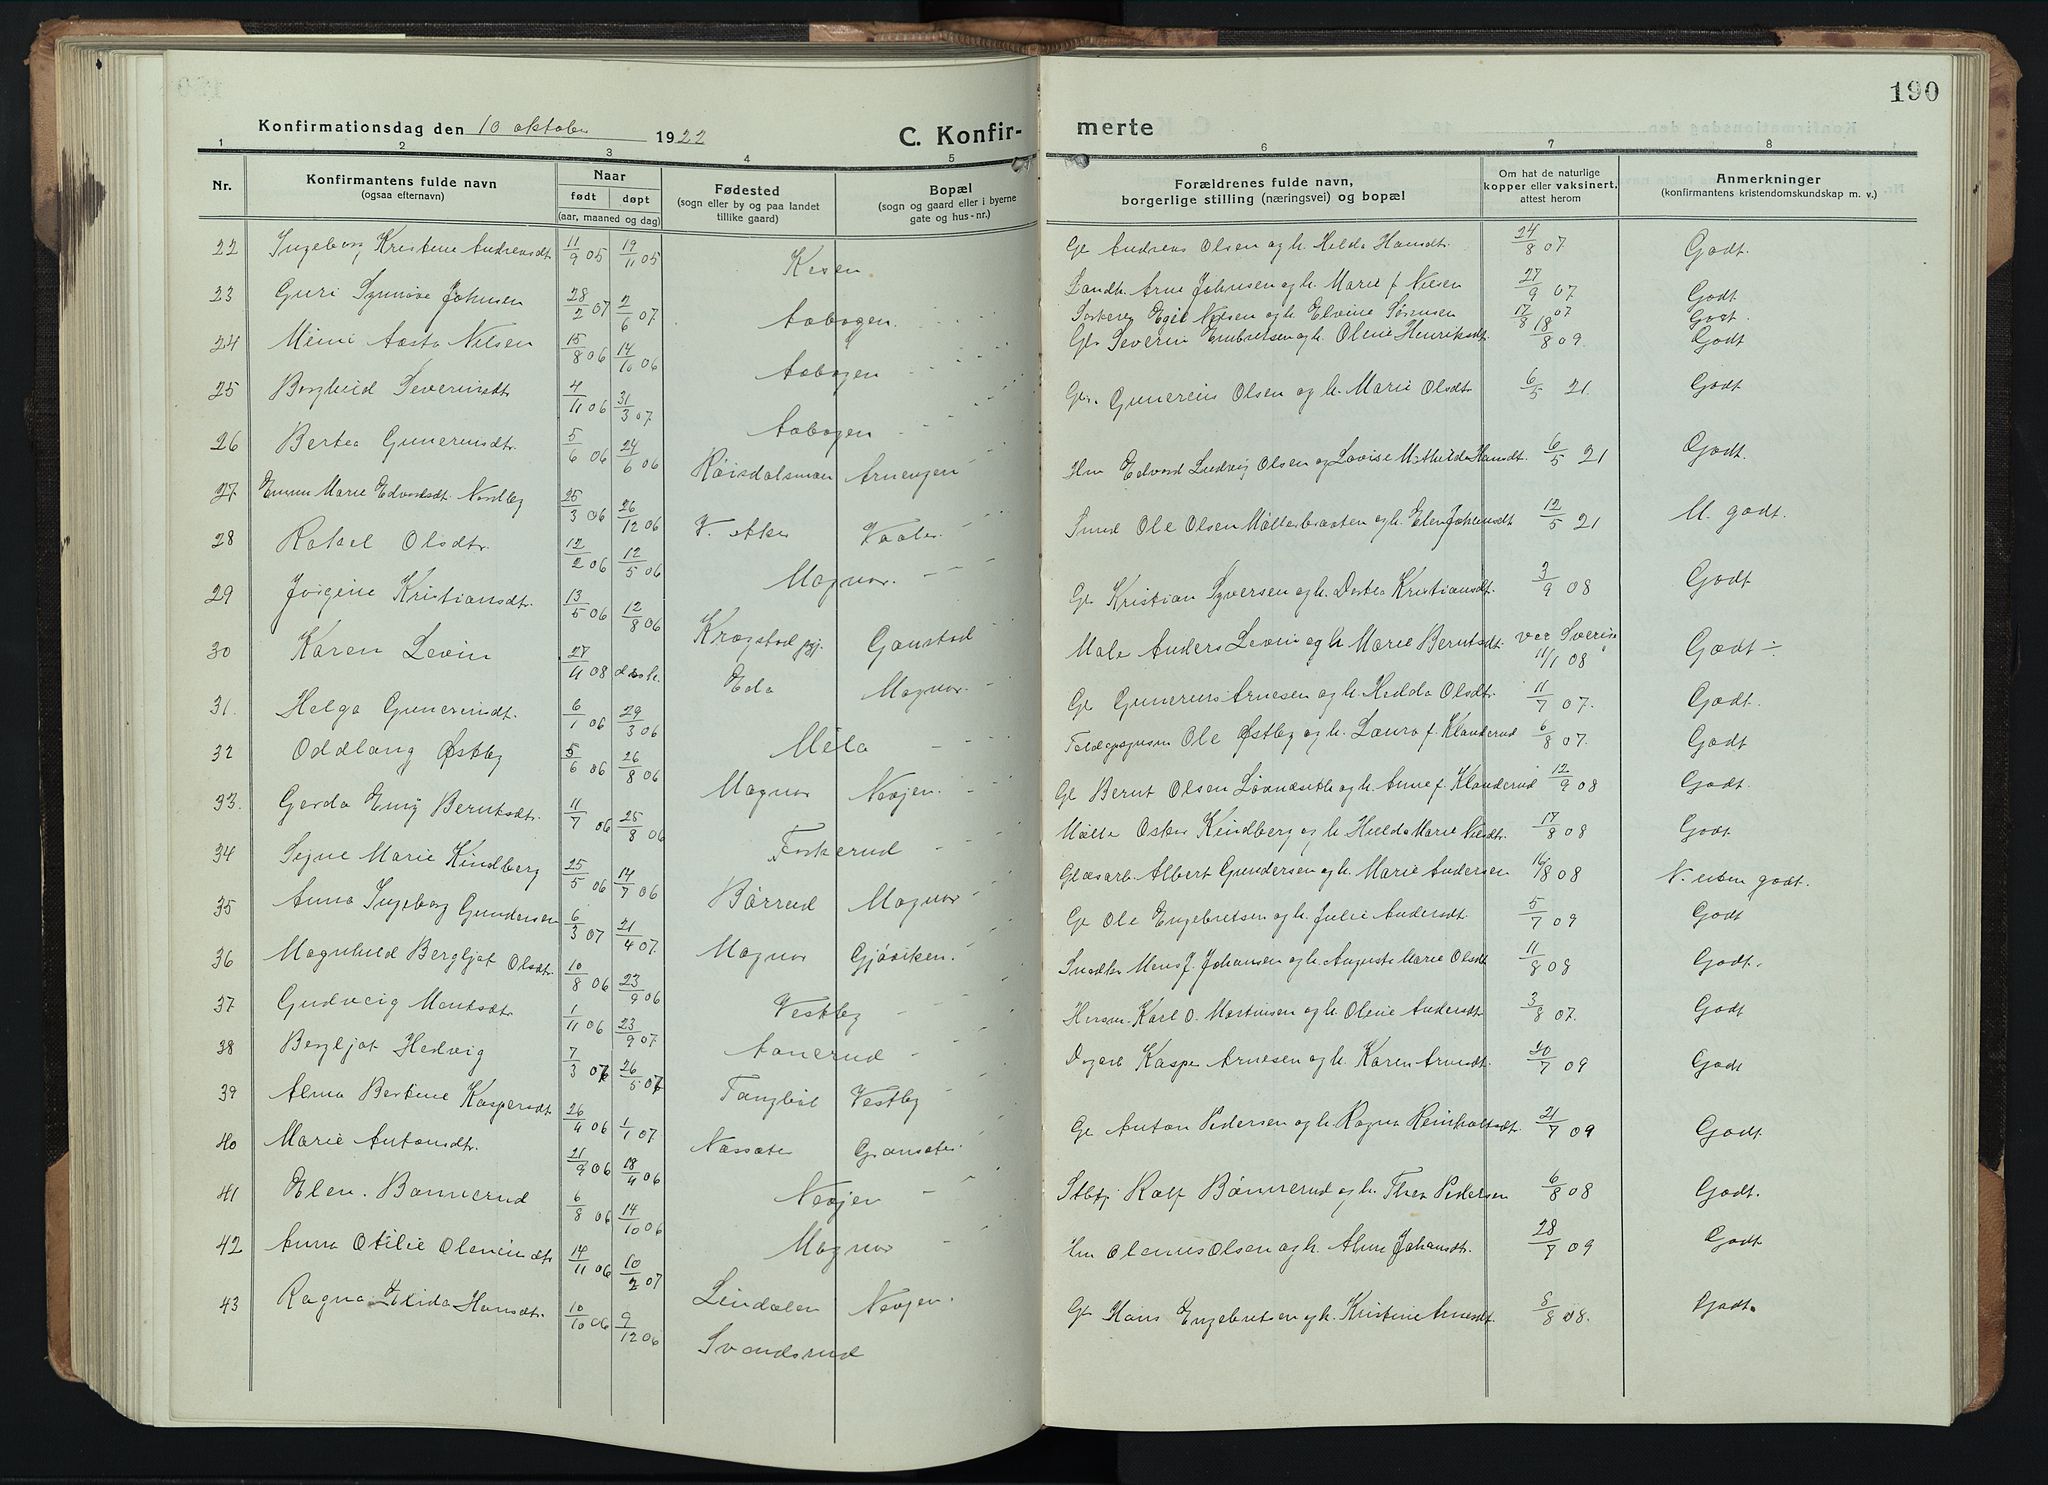 190
Konfirmationsdag den 10 oktober 1922
C. Konfir-
merte
1 2 3 4 5 6 7 8
Nr.
Konfirmantens fulde navn
(ogsaa efternavn)
Naar
født døpt
(aar, maaned og dag)
Fødested
(sogn eller by og paa landet
tillike gaard)
Bopæl
(sogn og gaard eller i byerne
gate og hus-nr.)
Forældrenes fulde navn,
borgerlige stilling (næringsvei) og bopæl
Om hat de naturlige
kopper eller vaksinert,
attest herom
Anmerkninger
(konfirmantens kristendomskundskap m. v.)
22 Ingeborg Kristine Andreasdt 11/9 05 19/11 05 Kesen Ge Andreas Olsen og h. Helda Hansdt. 24/8 07. Godt.
23 Guri Synnøve Johnsen 28/2 07 2/6 07 Aabogen. Landh. Arne Johnsen og h. Marie f. Nilsen 27/9 07 Godt
24 Mimi Aasta Nilsen 15/8 06 14/10 06 Aabogen Egil Nilsen og h. Elvine Sørensen 17/8 07 Godt.
25 Borghild Severinsdtr 4/11 06 31/3 07. Aabogen Ge Severin Embretsen og h. Oline Henriksdt. 18/8 09. Godt
26 Bertea Guneriusdtr 5/6 06 24/6 06 Høisdalsmoen Arnengen Ge. Gunerius Olsen og h. Marie Olsdtr 6/5 21. Godt
27 Emma Marie Edvardsdt. Nordby 25/3 06 26/12 06 V. Aker Vaaler. Hm Edvard Ludvig Olsen og Lovise Mathilde Hansdt. 6/5 21 Godt.
28 Rakel Olsdtr. 12/2 06 12/5 06 Magnor. Smed Ole Olsen Møllerbraaten og h. Elen Johansdt 12/5 21 M. godt.
29 Jørgine Kristiansdtr. 13/5 06 12/8 06 Kragstad Gaustad Ge Kristian Syversen og h. Dortea Kristiansdt. 3/9 08 Godt
30 Karen Levin 27/11 08 Eda Magnor. Male Anders Levin og h. Marie Berntsdt. vac Sverige 11/1 08 Godt ÷
31. Helga Guneriusdt. 6/1 06 29/3 06 Mela Ge Gunerius Arnesen og h. Hilda Olsdtr. 11/7 07. Godt.
32 Oddlaug Østby 5/6 06 26/8 06 Magnor Nevjen. Ole Østby og h. Laura f. Klanderud 6/8 07. Godt
33. Gerda Emy Berntsdtr. 11/7 06 25/8 06 Foskerud Ge Bernt Olsen og h. Anne f. Klanderud 12/9 08 Godt.
34 Signe Marie Kindberg 25/5 06 14/7 06 Børrud Magnor Mølle Oskar Kindberg og h. Hulda Marie Nilsdtr. 17/8 08 Godt
35 Anna Ingeborg Gundersen 6/3 07 21/4 07. Magnor Gjøviken. Glasarb. Albert Gundersen og h. Marie Andersen 16/8 08 N. uten godt.
36 Magnhild Bergljot Olsdtr. 10/8 06 23/9 06 Vestby Ge Ole Engebretsen og h. Julie Andersdt. 5/7 09 Godt
37 Gudveig Monsdtr 1/11 06 23/9 07 Aanerud Mons J. Johansen og h. Auguste Marie Olsdt 11/8 08 Godt.
38 Bergljot Hedvig 7/3 07 26/5 07 Tangbøl Vestby Karl O. Martinsen og h. Oline Andersdt. 3/8 07. Godt
39 Alma Bertine Kaspersdt 26/4 06 1/1 07 Næssæter Gransæter. Dagarb Kasper Arnesen og h. Karen Arnesdt. 20/7 09 Godt
40 Marie Antonsdtr. 21/9 06 18/4 06 Nevjen Ge Anton Pedersen og h. Ragna Reinholtsdt. 21/7 09 Godt.
41 Elen. Bønnerud 6/8 06 14/10 06 Magnor Stbtj Ralf Bønnerud og h. Thea Pedersen 6/8 08 Godt.
42 Anna Otilie Oleniusdtr 14/11 06 10/2 07 Lindalen Nevjen. Hm Olenius Olsen og h. Aline Johansdt. 28/7 09 Godt
43 Ragna Elida Hansdtr. 10/10 06 9/12 06 Svandsrud Ge Hans Engebretsen og h. Kristine Arnesdt. 8/8 08. Godt.